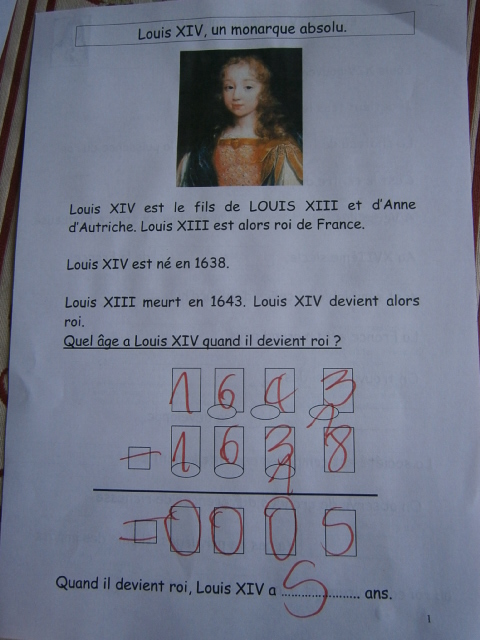 Louis XIV, un monarque absolu.
Louis XIV est le fils de LOUIS XIII et d'Anne
d'Autriche. Louis XIII est alors roi de France.
Louis XIV est né en 1638.
Louis XIII meurt en 1643. Louis XIV devient alors
roi.
Quel âge a Louis XIV quand il devient roi ?
1 6 4 3
1
- 1 6 3 8
1
= 0 0 0 5
Quand il devient roi, Louis XIV a ...5... ans.
1